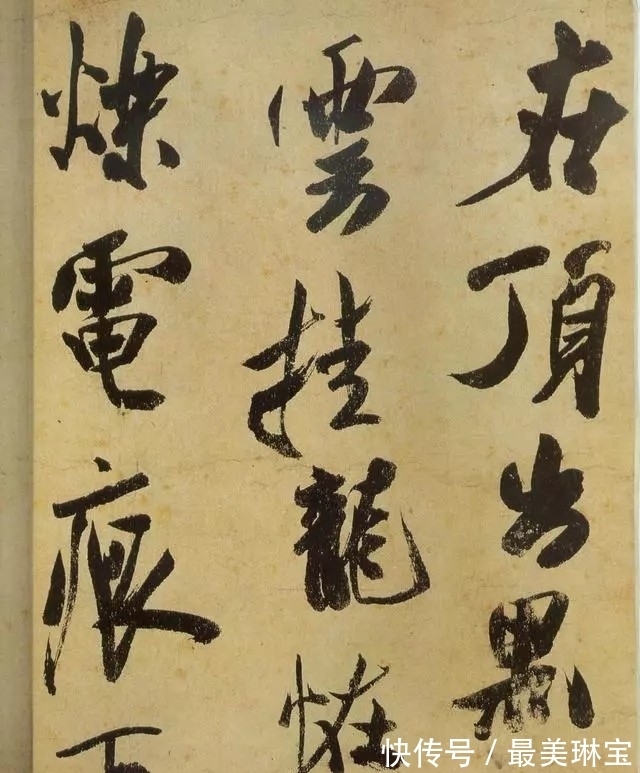 在頂出黑
雲挂龍恠
爍電痕下
快传号 / 最美琳宝